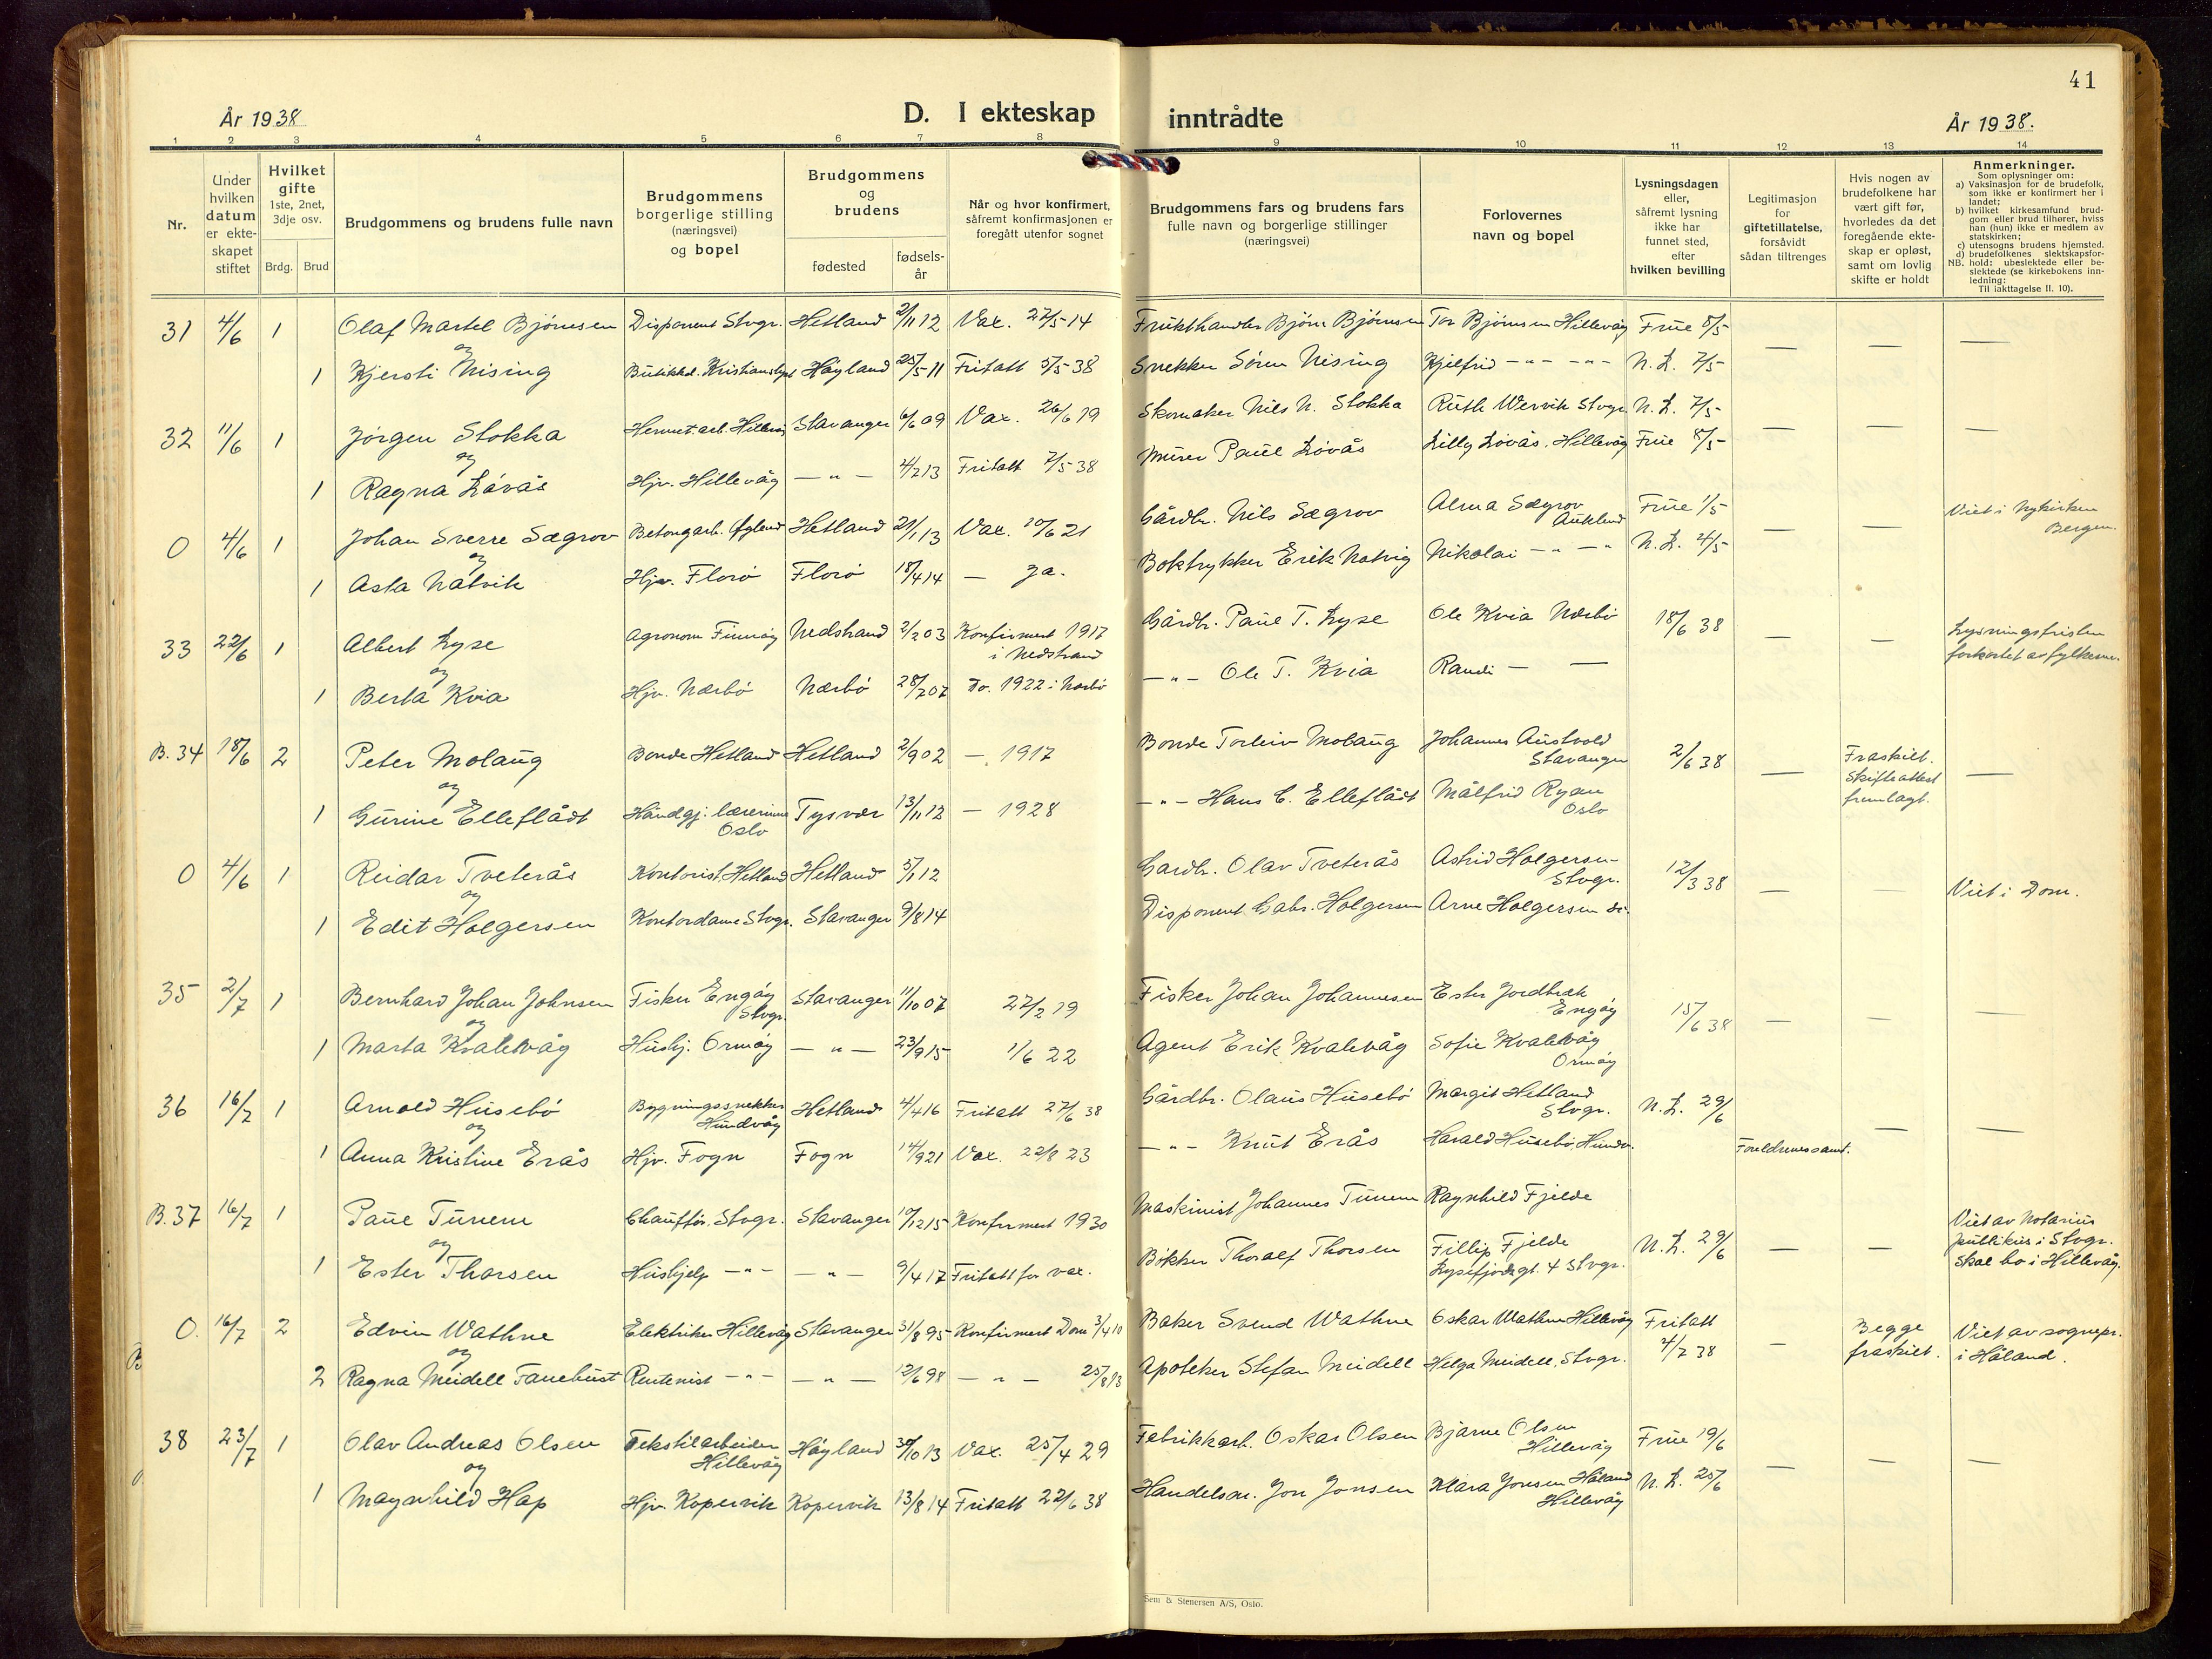 41
År 1938
D. I ekteskap inntrådte
År 1938.
1 2 3 4 5 6 7 8 9 10 11 12 13 14
Nr.
Under hvilken datum er ekte-skapet stiftet
Hvilket gifte 1ste, 2net, 3dje osv.
Brdg. Brud
Brudgommens og brudens fulle navn
Brudgommens borgerlige stilling (næringsvei) og bopel
Brudgommens og brudens
fødested
fødsels-år
Når og hvor konfirmert, såfremt konfirmasjonen er foregått utenfor sognet
Brudgommens fars og brudens fars fulle navn og borgerlige stillinger (næringsvei)
Forlovernes navn og bopel
Lysningsdagen eller, såfremt lysning ikke har funnet sted, efter hvilken bevilling
Legitimasjon for giftetillatelse, forsåvidt sådan tiltrenges
Hvis nogen av brudefolkene har vært gift før, hvorledes da det foregående ekte-skap er opløst, samt om lovlig skifte er holdt
Anmerkninger.
Som oplysninger om:
a) Vaksinasjon for de brudefolk, som ikke er konfirmert her i landet;
b) hvilket kirkesamfund brud-gom eller brud tilhører, hviss han (hun) ikke er medlem av statskirken;
c) utensogns brudens hjemsted.
d) brudefolkenes slektskapsfor-hold: ubeslektede eller be-slektede (se kirkebokens inn-ledning:
NB. Til iakttagelse II. 10).
31 4/6 1 Olaf Martel Bjørnsen Disponent Stvgr. Hetland 2/11 12 Vax. 27/5 14 Frukthandler Bjørn Bjørnsen Tor Bjørnsen Hillevåg Frue 8/5 — — —
og
1 Kjersti Nising Høyland 25/5 11 Fritatt 5/5 38 Snekker Sören Nising Kjelfrid -"- -"- N.L. 7/5
32 11/6 1 Jørgen Stokka Hermet.arb. Hillevåg Stavanger 6/6 09 Vax. 26/6 19 Skomaker Nils N. Stokka Ruth Wervik Stvgr. N.L. 7/5 — — —
og
1 Ragna Løvås Hjv. Hillevåg -"- 4/2 13 Fritatt 7/5 38 Murer Paul Løvås Lilly Løvås, Hillevåg Frue 8/5
0 4/6 1 Johan Sverre Sægrov Betongarb. Hetland 21/1 13 Vax. 10/6 21 Gårdbr. Nils Sægrov Alma Sægrov Aukland Frue 1/5 — — Viet i Nykirken Bergen.
og
1 Asta Natvik Hjv. Florø Florø 18/4 14 — ja. Boktrykker Erik Natvig Nikolai -"- -"- N.L. 4/5
33 22/6 1 Albert Lyse Agronom Finnøy Nedstrand 2/2 03 Konfirmert 1917 i Nedstrand Gårdbr. Paul T. Lyse Ole Kvia Nærbø 18/6 38 — — Lysningsfristen forkortet av fylkesm.
og
1 Berta Kvia Hjv. Nærbø Nærbø 28/7 07 Do. 1922 i Nærbø -"- Ole T. Kvia Randi — —
B. 34 18/6 2 Peter Molaug Bonde Hetland Hetland 2/9 02 — 1917 Bonde Torleiv Molaug Johannes Austvold Stavanger 2/6 38 — Fraskilt. Skifteattest fremlagt. —
og
1 Gurine Elleflådt Håndgj. lærerinne Oslo Tysvær 13/11 12 — 1928 -"- Hans C. Elleflådt Målfrid Ryan Oslo
0 4/6 1 Reidar Tveterås Kontorist, Hetland Hetland 5/1 12 Gardbr. Olav Tveterås Astrid Holgersen Stvgr. 12/3 38 — — Viet i Dom.
og
1 Edit Holgersen Kontordame Stvgr. Stavanger 9/8 14 Disponent Gabr. Holgersen Arne Holgersen do.
35 2/7 1 Bernhard Johan Johnsen Fisker Engøy Stvgr. Stavanger 11/10 07 27/2 19 Fisker Johan Johannesen Ester Jordbræk Engøy 15/6 38 — — —
og
1 Marta Kvalevåg Hushj. Ormøy -"- 23/9 15 1/6 22 Agent Erik Kvalevåg Sofie Kvalevåg Ormøy
36 16/7 1 Arnold Husebø Bygningssnekker Hundvåg Hetland 4/4 16 Fritatt 27/6 38 Gårdbr. Olaus Husebø Margit Hetland Stvgr. N.L. 29/6 — —
og
1 Anna Kristine Erås Hjv. Fogn Fogn 14/9 21 Vax. 22/8 23 -"- Knut Erås Harald Husebø, Hundv. Foreldrenes samt.
B. 37 16/7 1 Paul Tunem Chauffør, Stvgr. Stavanger 10/12 15 Konfirmert 1930 Maskinist Johannes Tunem Ragnhild Fjelde
og
1 Ester Thorsen Hushjelp -"- -"- 9/4 17 Fritatt for vax. Bøkker Thoralf Thorsen Fillip Fjelde Lysefjordgt. 4 Stvgr. N.L. 29/6 — — Viet av Notarius publikus i Stvgr. Skal bo i Hillevåg.
0. 16/7 2 Edvin Wathne Elektriker Hillevåg Stavanger 31/8 95 Konfirmert Dom 3/4 10 Baker Svend Wathne Oskar Wathne Hillevåg Fritatt 4/7 38 — Begge fraskilt. Viet av sognepr. i Håland.
og
2 Ragna Meidell Fanehust Rentenist -"- -"- 12/6 98 -"- 25/8 13 Apoteker Stefan Meidell Helga Meidell, Stvgr.
38 23/7 1 Olav Andreas Olsen Tekstilarbeider Hillevåg Høyland 30/10 13 Vax. 25/4 29 Fabrikkarb. Oskar Olsen Bjarne Olsen Hillevåg Frue 19/6 — — —
og
1 Magnhild Hap Hjv. Kopervik Kopervik 13/8 14 Fritatt 22/6 38 Handelsm. Jon Jonsen Klara Jonsen Håland Hillevåg N.L. 25/6
Sem & Stenersen A/S, Oslo.